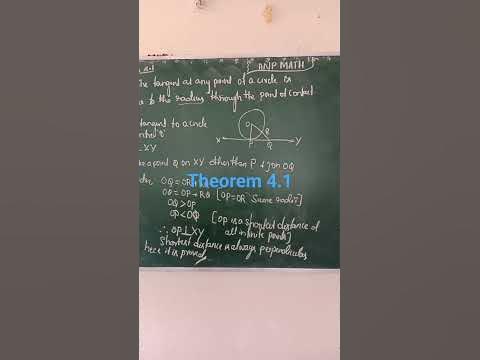 ANP MATH
The tangent at any point of a circle is
to the radius through the point of contact
tangent to a circle
XY
O
R
X
P
Q
Y
a point Q on XY other than P & join OQ
Theorem 4.1
OQ = OR +
OQ = OP + RQ [OP=OR Same radii]
OQ > OP
OP < OQ [OP is a shortest distance of
all infinite points]
∴ OP ⊥ XY
shortest distance is always perpendicular
it is proved